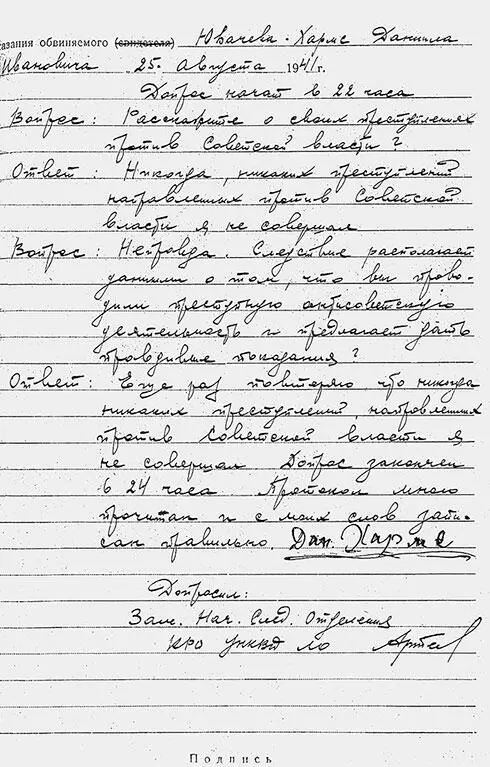 азания обвиняемого (свидетеля) Ювачева-Хармс Даниила
Ивановича 25. Августа 1941 г.
Допрос начат в 22 часа
Вопрос: Расскажите о своих преступлениях
против Советской власти?
Ответ: Никогда, никаких преступлений
направленных против Советской
власти я не совершал
Вопрос: Неправда. Следствие располагает
данными о том, что вы прово-
дили преступную антисоветскую
деятельность и предлагает дать
правдивые показания?
Ответ: Еще раз повторяю что никогда
никаких преступлений, направленных
против Советской власти я
не совершал Допрос закончен
в 24 часа Протокол мною
прочитан и с моих слов запи-
сан правильно. Дан. Хармс
Допросил:
Зам. Нач. След. Отделения
КРО УНКВД ЛО
Подпись